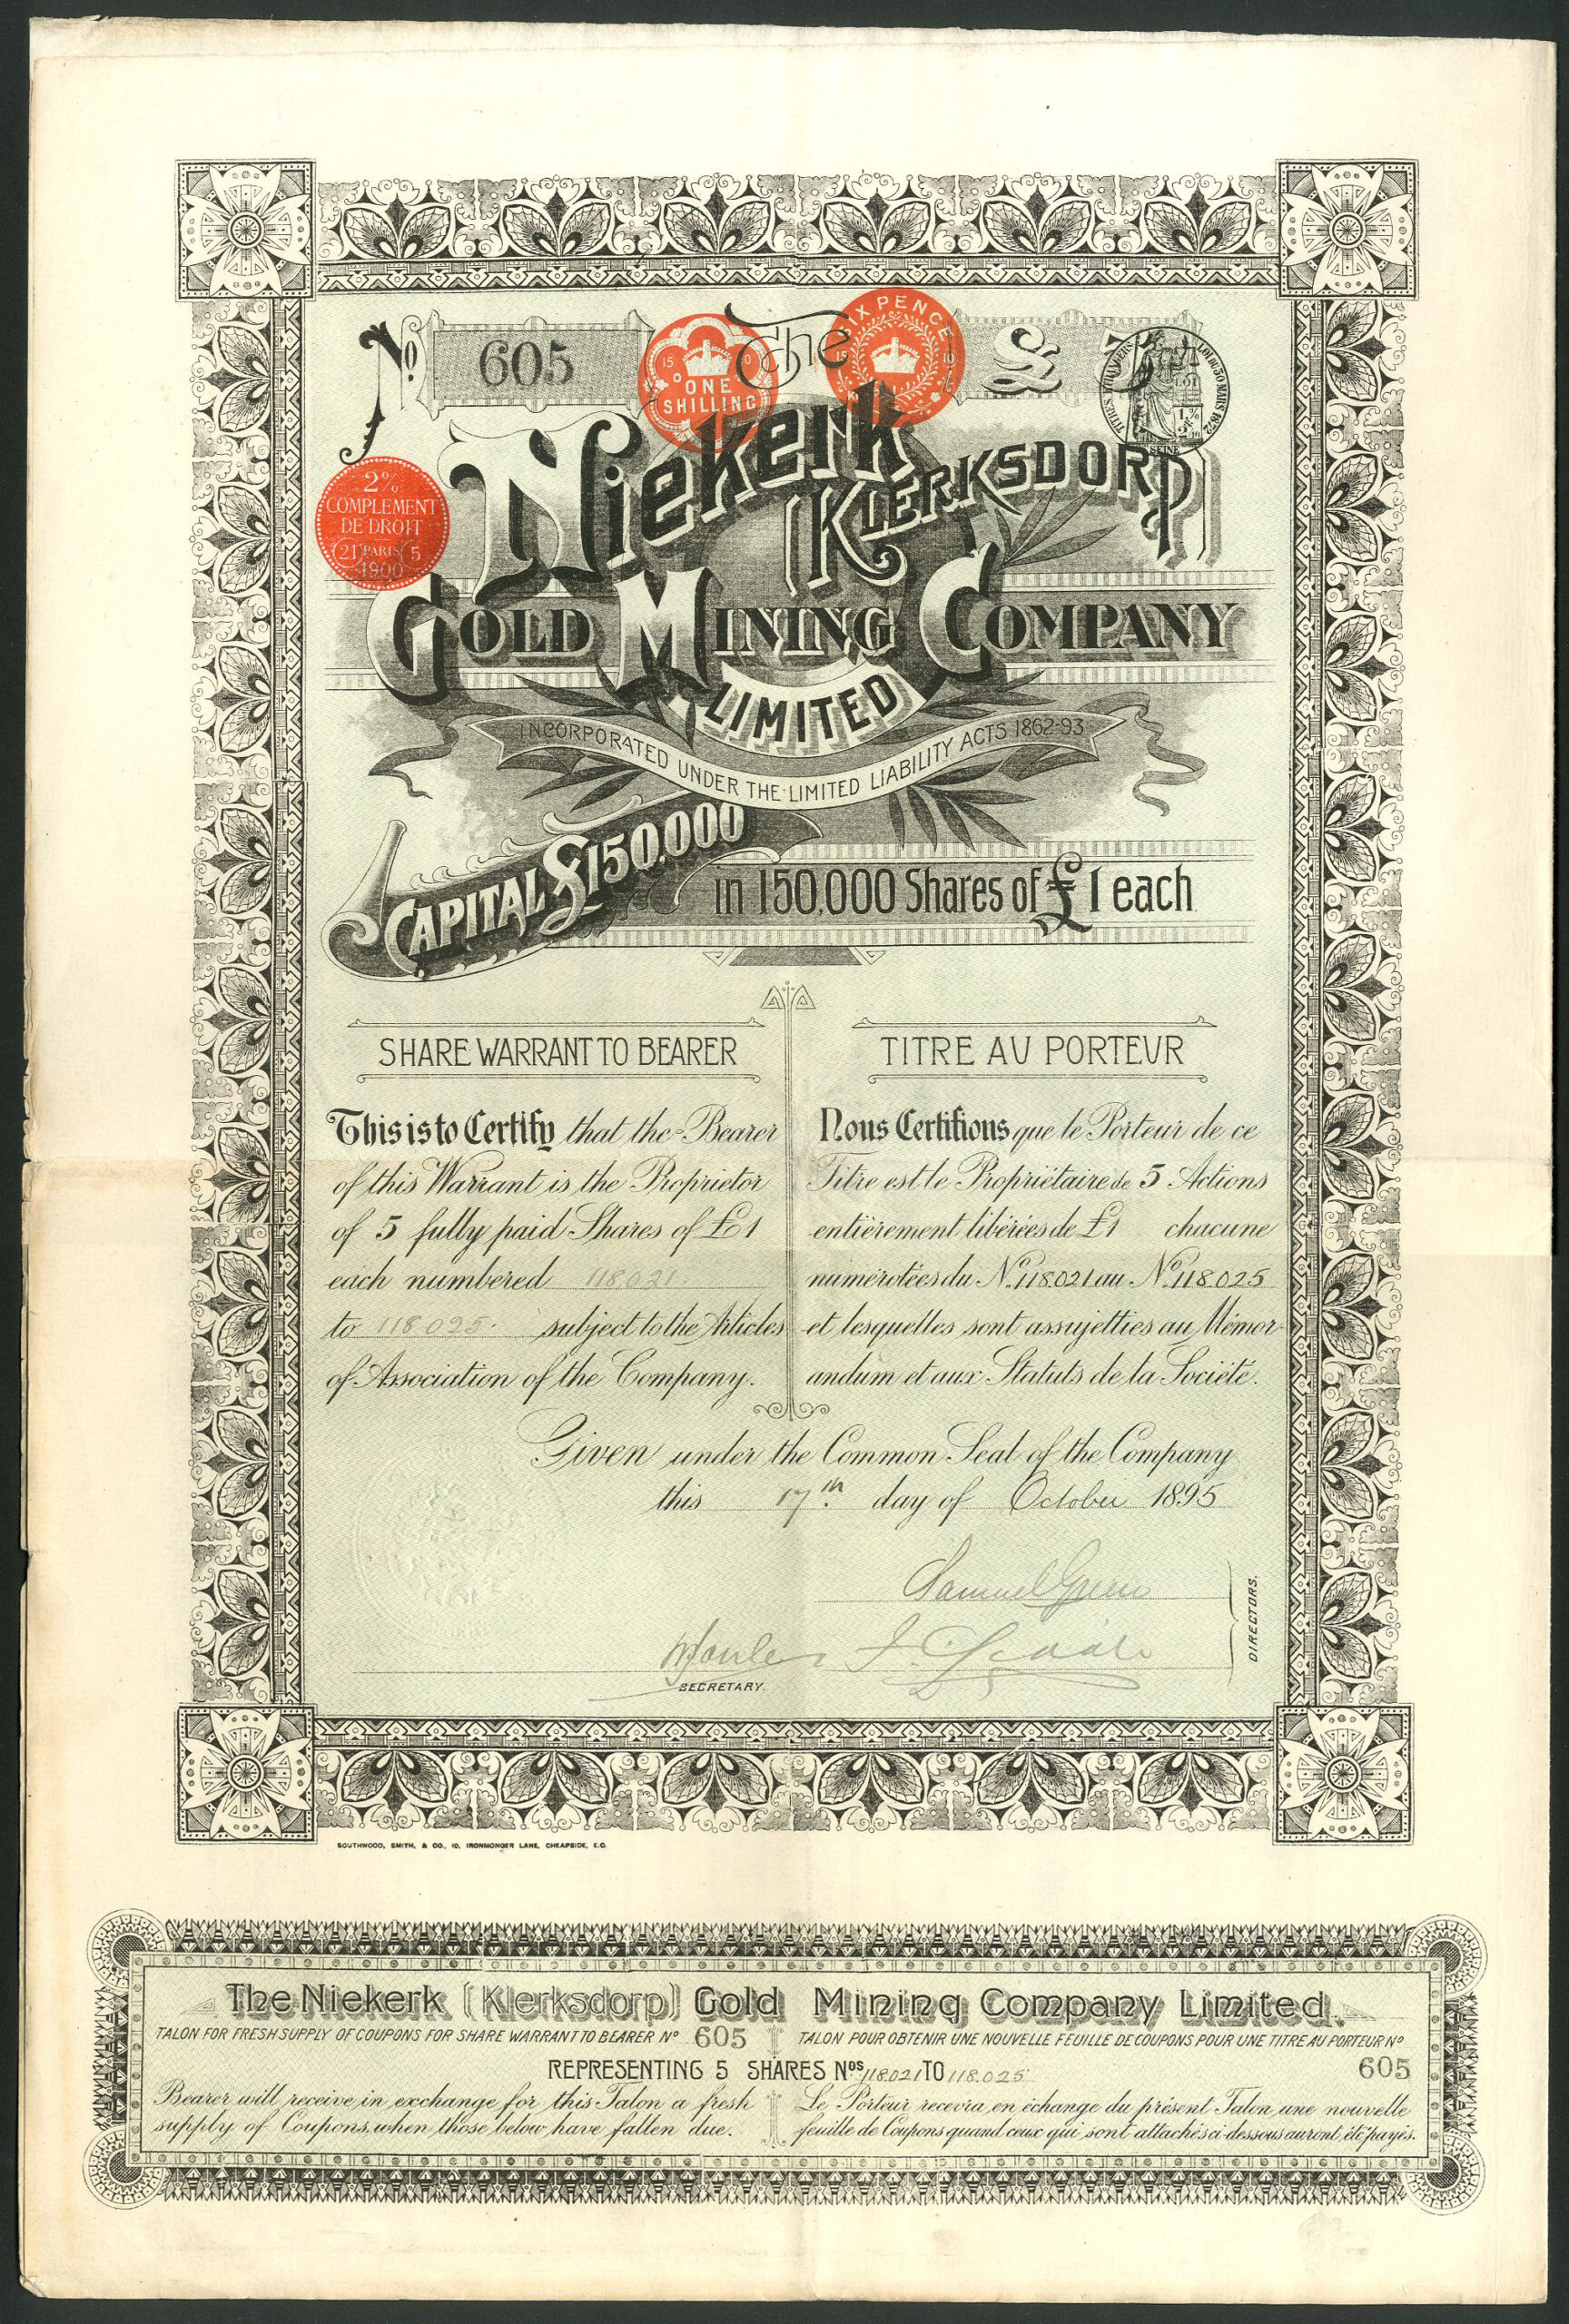 No. 605
The
£ 5
15 0
ONE
SHILLING
SIX PENCE
TITRES ÉTRANGERS
LOI DU 30 MARS 1872
SEINE
2%
COMPLEMENT
DE DROIT
21 PARIS 5
1900
Niekerk
(KLERKSDORP)
GOLD MINING COMPANY
LIMITED
INCORPORATED UNDER THE LIMITED LIABILITY ACTS 1862-93
CAPITAL £150,000
in 150,000 Shares of £1 each
SHARE WARRANT TO BEARER
This is to Certify that the Bearer
of this Warrant is the Proprietor
of 5 fully paid Shares of £1
each numbered 118021
to 118025. subject to the Articles
of Association of the Company.
TITRE AU PORTEUR
Nous Certifions que le Porteur de ce
Titre est le Propriétaire de 5 Actions
entièrement libérées de £1 chacune
numérotées du No. 118021 au No. 118025
et lesquelles sont assujetties au Mémor-
andum et aux Statuts de la Société.
Given under the Common Seal of the Company
this 17th day of October 1895
Samuel
DIRECTORS.
SECRETARY.
SOUTHWOOD, SMITH, & CO., 10, IRONMONGER LANE, CHEAPSIDE, E.C.
The Niekerk (Klerksdorp) Gold Mining Company Limited.
TALON FOR FRESH SUPPLY OF COUPONS FOR SHARE WARRANT TO BEARER No 605
TALON POUR OBTENIR UNE NOUVELLE FEUILLE DE COUPONS POUR UNE TITRE AU PORTEUR No
605
REPRESENTING 5 SHARES Nos 118.021 TO 118.025
Bearer will receive in exchange for this Talon a fresh
supply of Coupons when those below have fallen due.
Le Porteur recevra en échange du présent Talon une nouvelle
feuille de Coupons quand ceux qui sont attachés ci-dessous auront été payés.